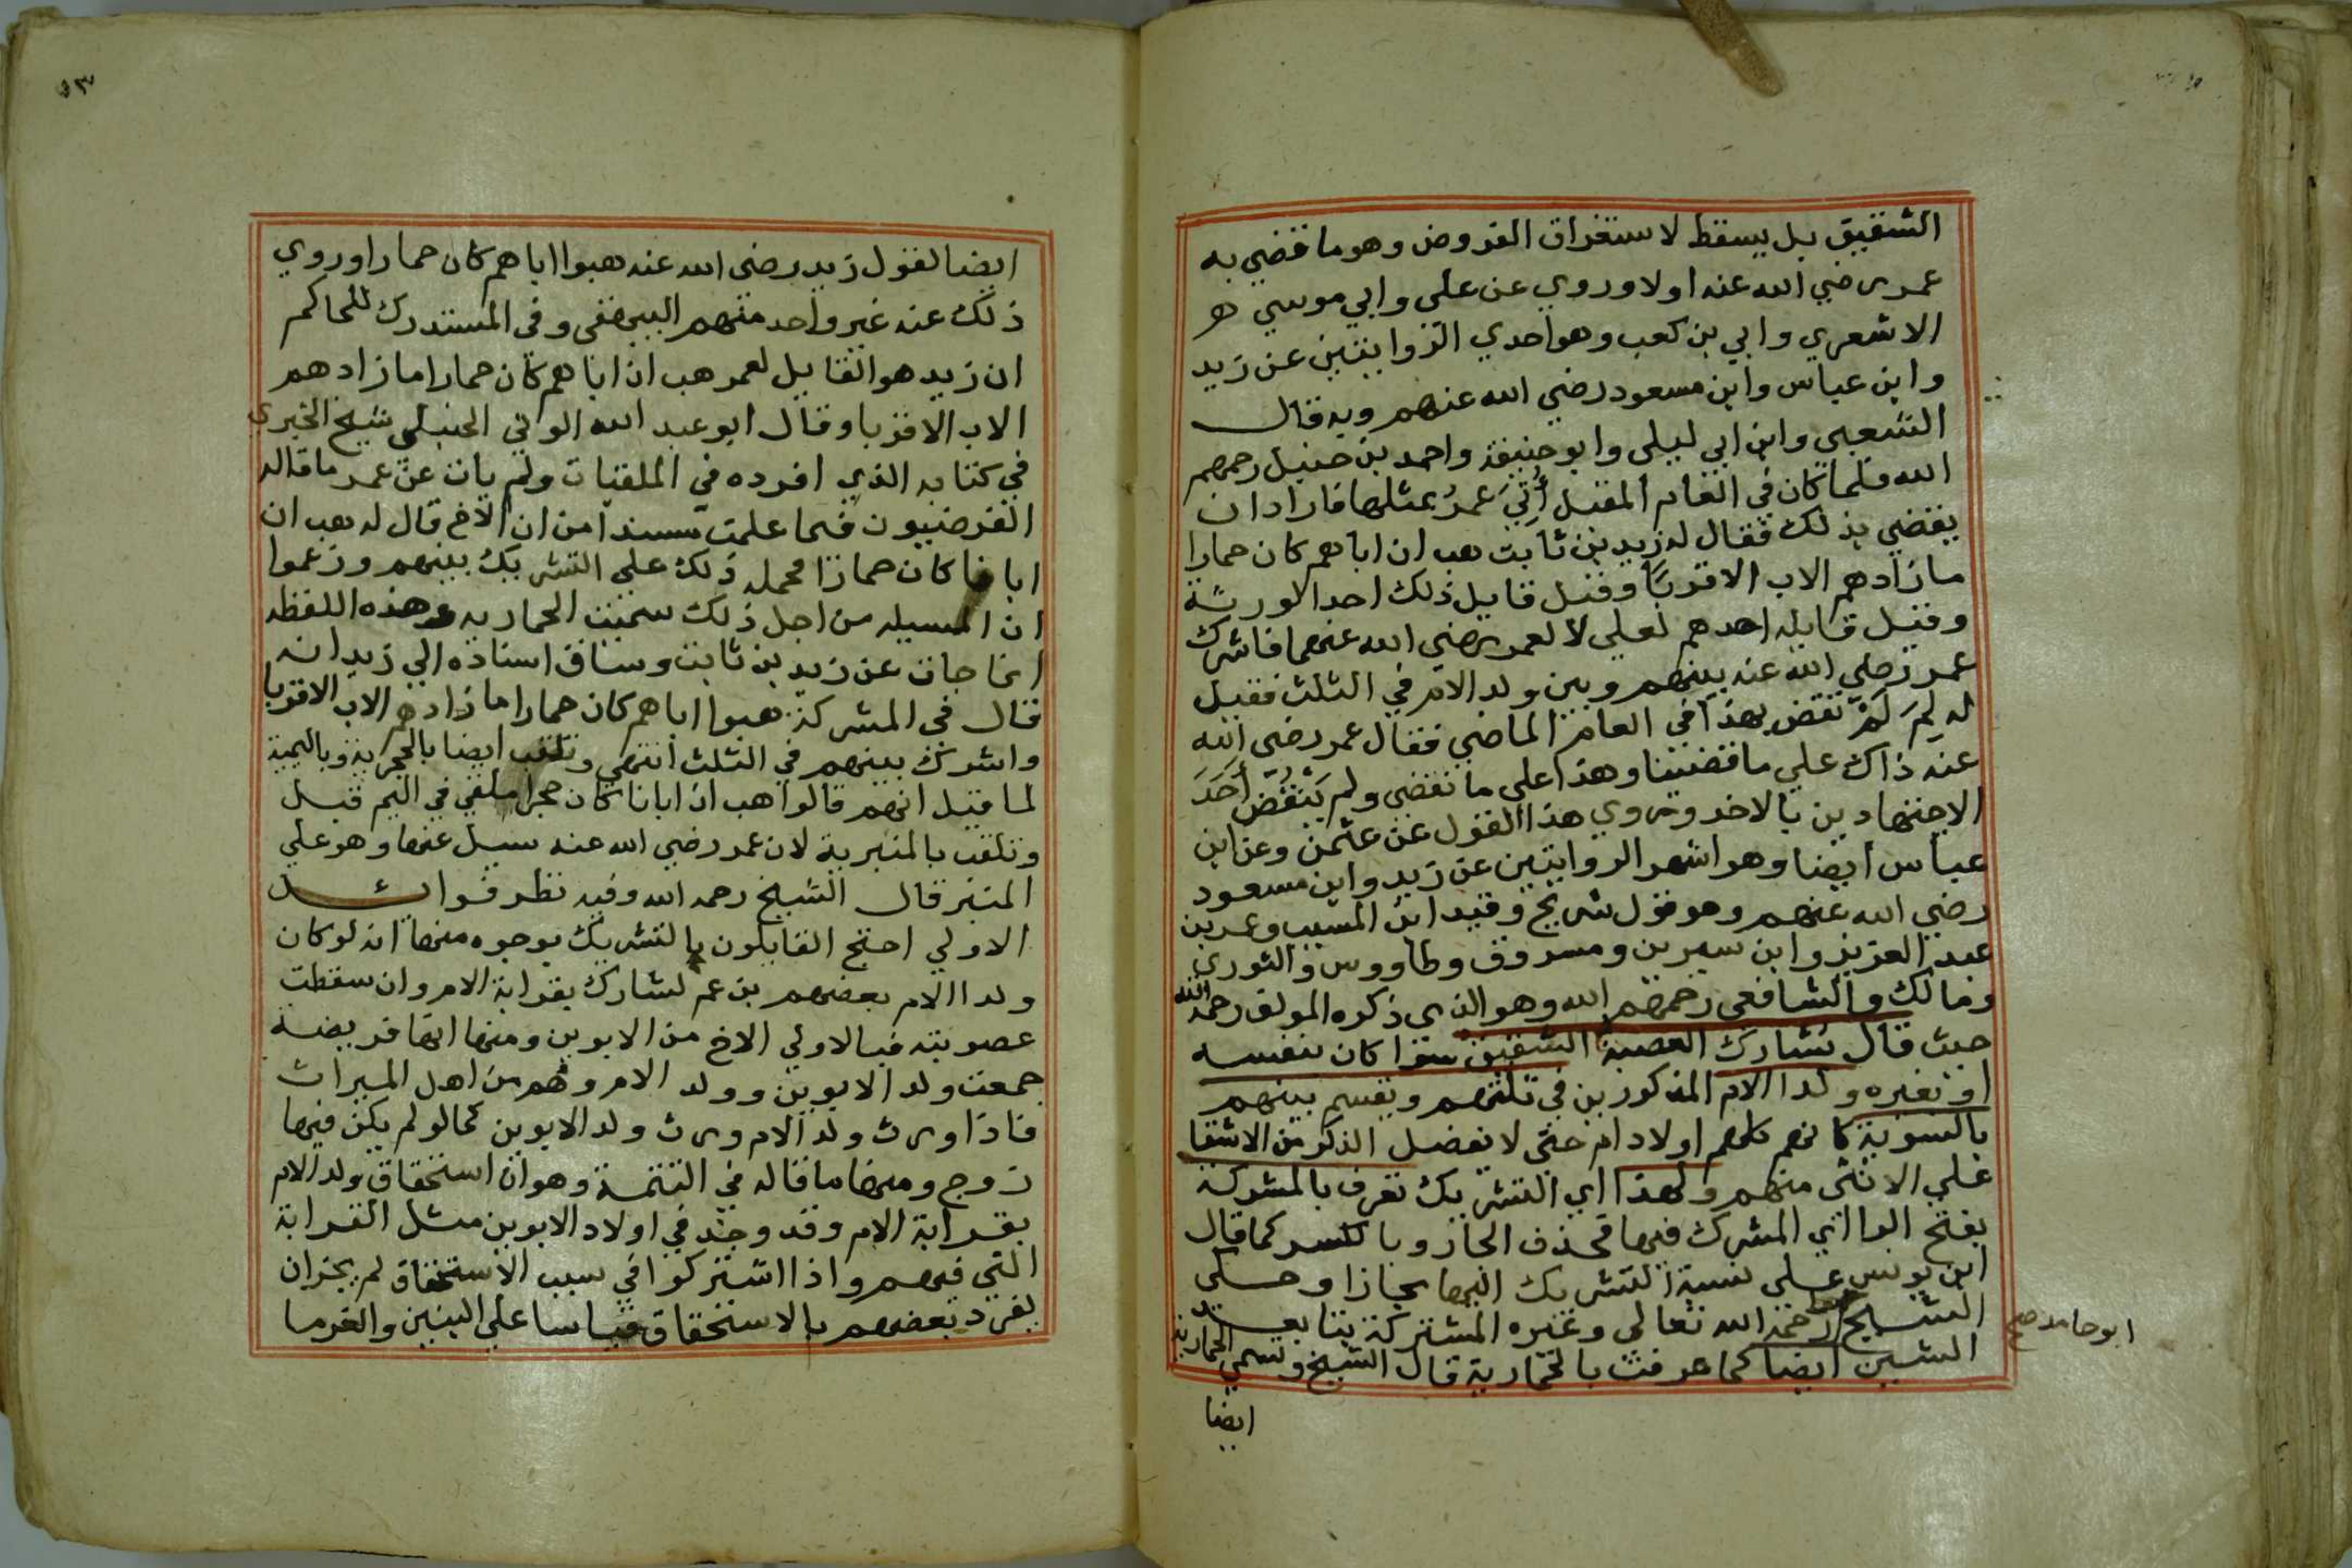 الشقيق بل يسقط لاستغراق الفروض وهو ما قضي به
عمر رضي الله عنه اولا وروي عن علي وابي موسي
الاشعري وابي بن كعب وهو احدي الروايتين عن زيد
وابن عباس وابن مسعود رضي الله عنهم وبه قال
الشعبي وابن ابي ليلي وابو حنيفة واحمد بن حنبل رحمهم
الله فلما كان في العام المقبل أُتِيَ عمرُ بمثلها فاراد ان
يقضي بذلك فقال له زيد بن ثابت هب ان اباهم كان حمارا
ما زادهم الاب الا قربًا وقيل قايل ذلك احد الورثة
وقيل قايله احدهم لعلي لا لعمر رضي الله عنهما فاشرك
عمر رضي الله عنه بينهم وبين ولد الام في الثلث فقيل
له لِمَ لَمْ تقض بهذا في العام الماضي فقال عمر رضي الله
عنه ذاك علي ما قضينا وهذا علي ما نقضي ولم يَنْقُض أحَدَ
الاجتهادين بالاخر وروي هذا القول عن عثمن وعن ابن
عباس ايضا وهو اشهر الروايتين عن زيد وابن مسعود
رضي الله عنهم وهو قول شريح وقيد ابن المسيب وعمر بن
عبد العزيز وابن سيرين ومسروق وطاووس والثوري
ومالك والشافعي رحمهم الله وهو الذي ذكره المولف رحمه الله
حيث قال تشارك العصبة الشقيق سوا كان بنفسه
او بغيره ولد الام المذكورين في ثلثهم ويقسم بينهم
بالسوية كانهم كلهم اولاد ام حتي لا يفضل الذكر من الاشقا
علي الانثي منهم ولهذا اي التشريك تعرف بالمشركة
بفتح الرا اي المشرك فيها فحذف الجار وبالكسر كما قال
ابن يونس علي نسبة التشريك اليها مجازا وحكي
الشيخ رحمه الله تعالي وغيره المشتركة بتا بعد
ابو حامد صح
الشين ايضا كما عرفت بالحمارية قال الشيخ وتسمي الحمارية
ايضا
٥٣
ايضا لقول زيد رضي الله عنه هبوا اباهم كان حمارا وروي
ذلك عنه غير واحد منهم البيهقي وفي المستدرك للحاكم
ان زيد هو القايل لعمر هب ان اباهم كان حمارا ما زادهم
الاب الا قربا وقال ابو عبد الله الوني الحنبلي شيخ الخبري
في كتابه الذي افرده في الملقبات ولم يات عن عمر ما قاله
الفرضيون فما علمت مسندا من ان الاخ قال له هب ان
ابانا كان حمارا فحمله ذلك علي التشريك بينهم وزعموا
ان المسيله من اجل ذلك سميت الحماريه وهذه اللفظه
انما جات عن زيد بن ثابت وساق اسناده الي زيد انه
قال في المشركة هبوا اباهم كان حمارا ما زادهم الاب الا قربا
واشرك بينهم في الثلث انتهي وتلقب ايضا بالحجرية وباليمية
لما قيل انهم قالوا هب ان ابانا كان حجرا ملقي في اليم قيل
وتلقب بالمنبرية لان عمر رضي الله عنه سيل عنها وهو علي
المنبر قال الشيخ رحمه الله وفيه نظر فوائد
الاولي احتج القايلون بالتشريك بوجوه منها انه لو كان
ولد الام بعضهم بن عم لشارك بقرابة الام وان سقطت
عصوبته فبالاولي الاخ من الابوين ومنها انها فريضة
جمعت ولد الابوين وولد الام وهم من اهل الميراث
فاذا ورث ولد الام ورث ولد الابوين كما لو لم يكن فيها
زوج ومنها ما قاله في التتمة وهو ان استحقاق ولد الام
بقرابة الام وقد وجد في اولاد الابوين مثل القرابة
التي فيهم واذا اشتركوا في سبب الاستحقاق لم يجز ان
يفرد بعضهم بالاستحقاق قياسا علي البنين والغرما